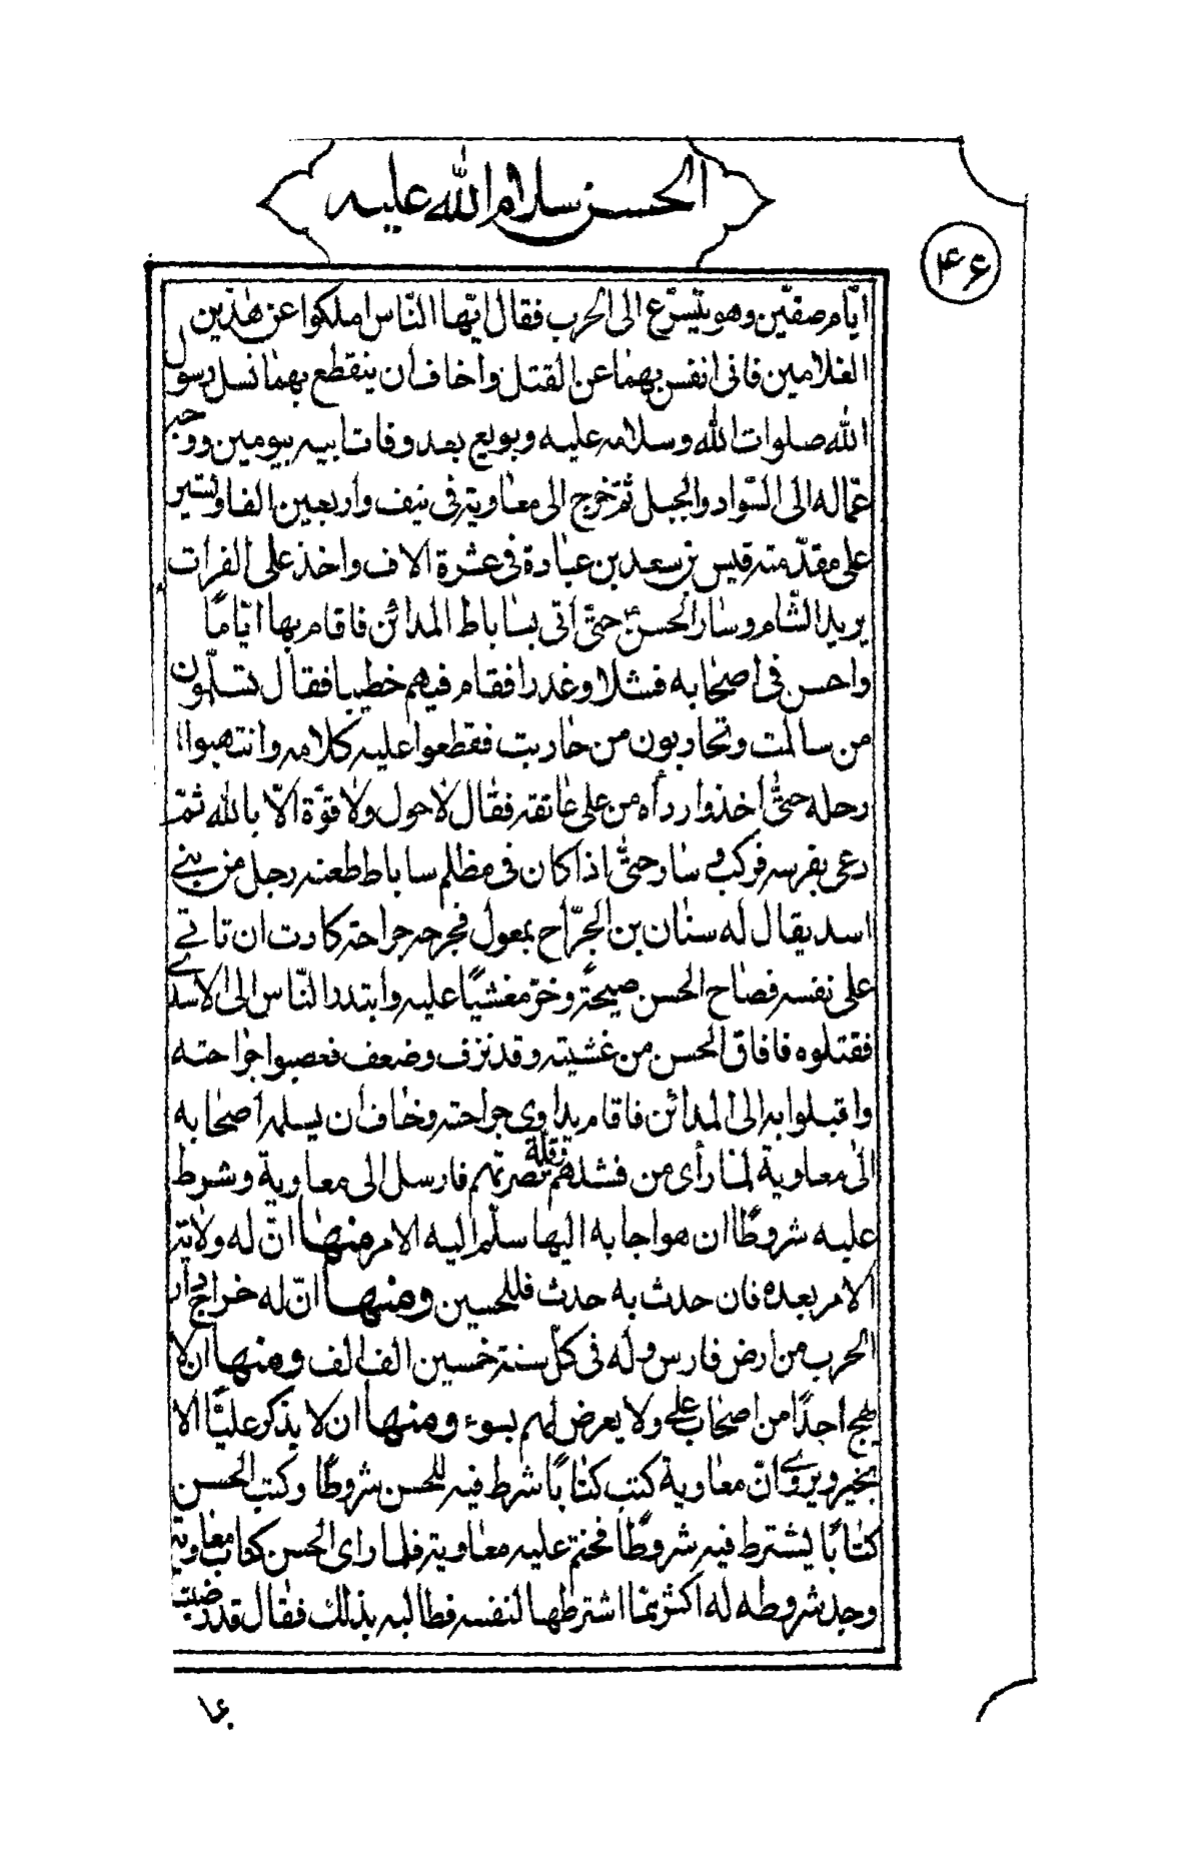 الحسن سلام الله عليه
۴۶
ايّام صفّين وهو يتسرّع الى الحرب فقال ايّها النّاس املكوا عن هٰذين
الغلامين فانى انفس بهما عن القتل واخاف ان ينقطع بهما نسل رسول
الله صلوات الله وسلامه عليه وبويع بعد وفات ابيه بيومين ووجه
عمّاله الى السّواد والجبل ثمّ خرج الى معاوية فى نيف واربعين الفا وستير
على مقدّمته قيس بن سعد بن عبادة فى عشرة الاف واخذ على الفرات
يريد الشّام وسار الحسن حتّى اتى بساباط المدائن فاقام بها ايّامًا
واحس فى اصحابه فشلا وغدرا فقام فيهم خطيبا فقال تسالمون
من سالمت وتحاربون من حاربت فقطعوا عليه كلامه وانتهبوا
رحله حتّى اخذوا رداه من على عاتقه فقال لا حول ولا قوّة الّا بالله ثمّ
دعى بفرسه فركب و سار حتّى اذا كان فى مظلم ساباط طعنه رجل من بنى
اسد يقال له سنان بن الجرّاح بمعول فجرحه جراحة كادت ان تاتى
على نفسه فصاح الحسن صيحةً وخرّ مغشيًا عليه وابتدر النّاس الى الاسدى
فقتلوه فافاق الحسن من غشيته وقد نزف وضعف فعصبوا جراحته
واقبلوا به الى المدائن فاقام يداوى جراحته وخاف ان يسلمه اصحابه
الى معاوية لما رأى من فشلهم وقلة نصرتهم فارسل الى معاوية وشرط
عليه شروطًا ان هو اجابه اليها سلّم اليه الامر منها انّ له ولاية
الامر بعده فان حدث به حدث فللحسين ومنها انّ له خراج دار
الحرب من ارض فارس وله فى كلّ سنة خمسين الف الف ومنها ان لا
يهيج احدًا من اصحاب على ولا يعرض لهم بسوء ومنها ان لا يذكر عليًّا الا
بخير ويروى انّ معاوية كتب كتابًا شرط فيه للحسن شروطًا وكتب الحسن
كتابًا يشترط فيه شروطًا فختم عليه معاوية فلما راى الحسن كتاب معاوية
وجد شروطه له اكثر مما اشترطها لنفسه فطالبه بذلك فقال قد رضيت